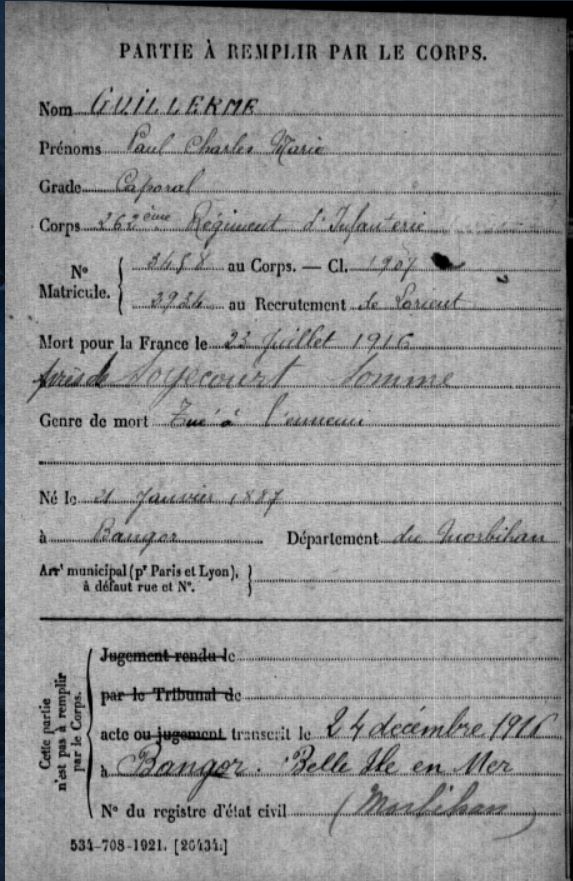 PARTIE À REMPLIR PAR LE CORPS.
Nom GUILLERME
Prénoms Paul Charles Marie
Grade Caporal
Corps 262ème Régiment d'Infanterie
N° Matricule. { 3458 au Corps. — Cl. 1907
3924 au Recrutement de Lorient
Mort pour la France le 22 Juillet 1916
près de Soyecourt Somme
Genre de mort Tué à l'ennemi
Né le 21 Janvier 1887
à Bangor Département du Morbihan
Arrt municipal (pr Paris et Lyon), }
à défaut rue et N°.
Cette partie n'est pas à remplir par le Corps.
Jugement rendu le
par le Tribunal de
acte ou jugement transcrit le 24 décembre 1916
à Bangor. Belle Ile en Mer
N° du registre d'état civil (Morbihan)
534-708-1921. [26434.]